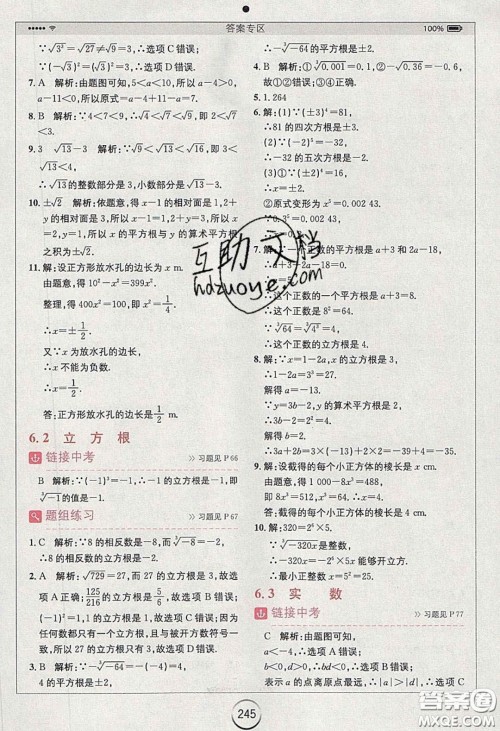 答案专区
100%
∵√3²=√27≠√9=3,∴选项C错误;
∵(-√3)²=√3≠3,∴选项D错误.
7. A 解析:由题图可知,5<a<10,所以a-4>0,
a-11<0,所以原式=a-4+11-a=7.
8. B 解析:∵4<7<9,∴√4<√7<√9,即2<√7
<3.
9. 3 √13-3 解析:∵9<13<16,∴3<√13<4,
∴√13的整数部分是3,小数部分是√13-3.
10. ±√2 解析:依题意,得x的相对面是1,2+
y的相对面是3,所以x-1=1,2+y=3,解得
x=2,y=1,所以x的平方根与y的算术平方根
之积为±√2.
11. 解:设正方形放水孔的边长为x m.
由题意,得10²-x²=399x².
整理,得400x²=100,即x²=1/4.
∴x=±1/2.
又∵x为放水孔的边长,
∴x不能为负数.
∴x=1/2.
答:正方形放水孔的边长为1/2 m.
6.2 立方根
链接中考
>习题见P66
B 解析:∵(-1)³=-1,∴-1的立方根是
∛-1的值是-1.
题组练习
>习题见P67
1. C 解析:∵8的相反数是-8,而∛-8=-2,
∴8的相反数的立方根是-2.
2. A 解析:∵√729=27,而27的立方根是3,故选
项A正确;125/216的立方根是5/6,故选项B错误;
(-1)²=1,1的立方根是1,故选项C错误;因为
任何数都只有一个立方根,并且与被开方数符号
一致,所以27的立方根只有3,故选项D错误.
3. B 解析:∵-∛-64=-(-4)=4,
4的平方根是±√4=±2,
∴-∛-64的平方根是±2.
4. B 解析:①∛0.001=0.1,②-∛-64=0.6,
故①②错误;③④正确.
5. 1.264
6. 解:(1)①∵(±3)⁴=81,
∴81的四次方根是±3.
②∵(-2)⁵=-32,
∴-32的五次方根是-2.
(2)①±1
②原式变形为x⁵=0.002 43,
∵0.3⁵=0.002 43,
∴x=0.3.
7. 解:∵一个正数的平方根是a+3和2a-18,
∴a+3+2a-18=0.
∴a=5.
∴这个正数的一个平方根是a+3=8.
∴这个正数是8²=64.
∵∛64=∛4³=4,
∴这个正数的立方根是4.
8. 解:∵x=1-2a,x的立方根是3,
∴1-2a=3³=27.
解得a=-13.
又∵y=3b-2,y的算术平方根是4,
∴3b-2=16.
解得b=6.
∴3a+2b=3×(-13)+2×6=-27.
9. 解:设截得的每个小正方体的棱长是x cm.
由题意,得1 000-8x³=488,
即8x³=512,解得x=4.
答:截得的每个小正方体的棱长是4 cm.
10. 解:-320=-2⁶×5.
∵∛-320x是一个整数,
∴-2⁶×5x应是一个数的立方.
∴最小正整数x=5²=25.
6.3 实数
链接中考
>习题见P77
C 解析:由题图可知,
a<-4,∴选项A错误;
b<0,d>0,∴bd<0,∴选项B错误;
表示a的点离原点最远,∴|a|>|d|,∴选项C
245
互助文档
hdzuoye.com
答案圈
MXQE.COM